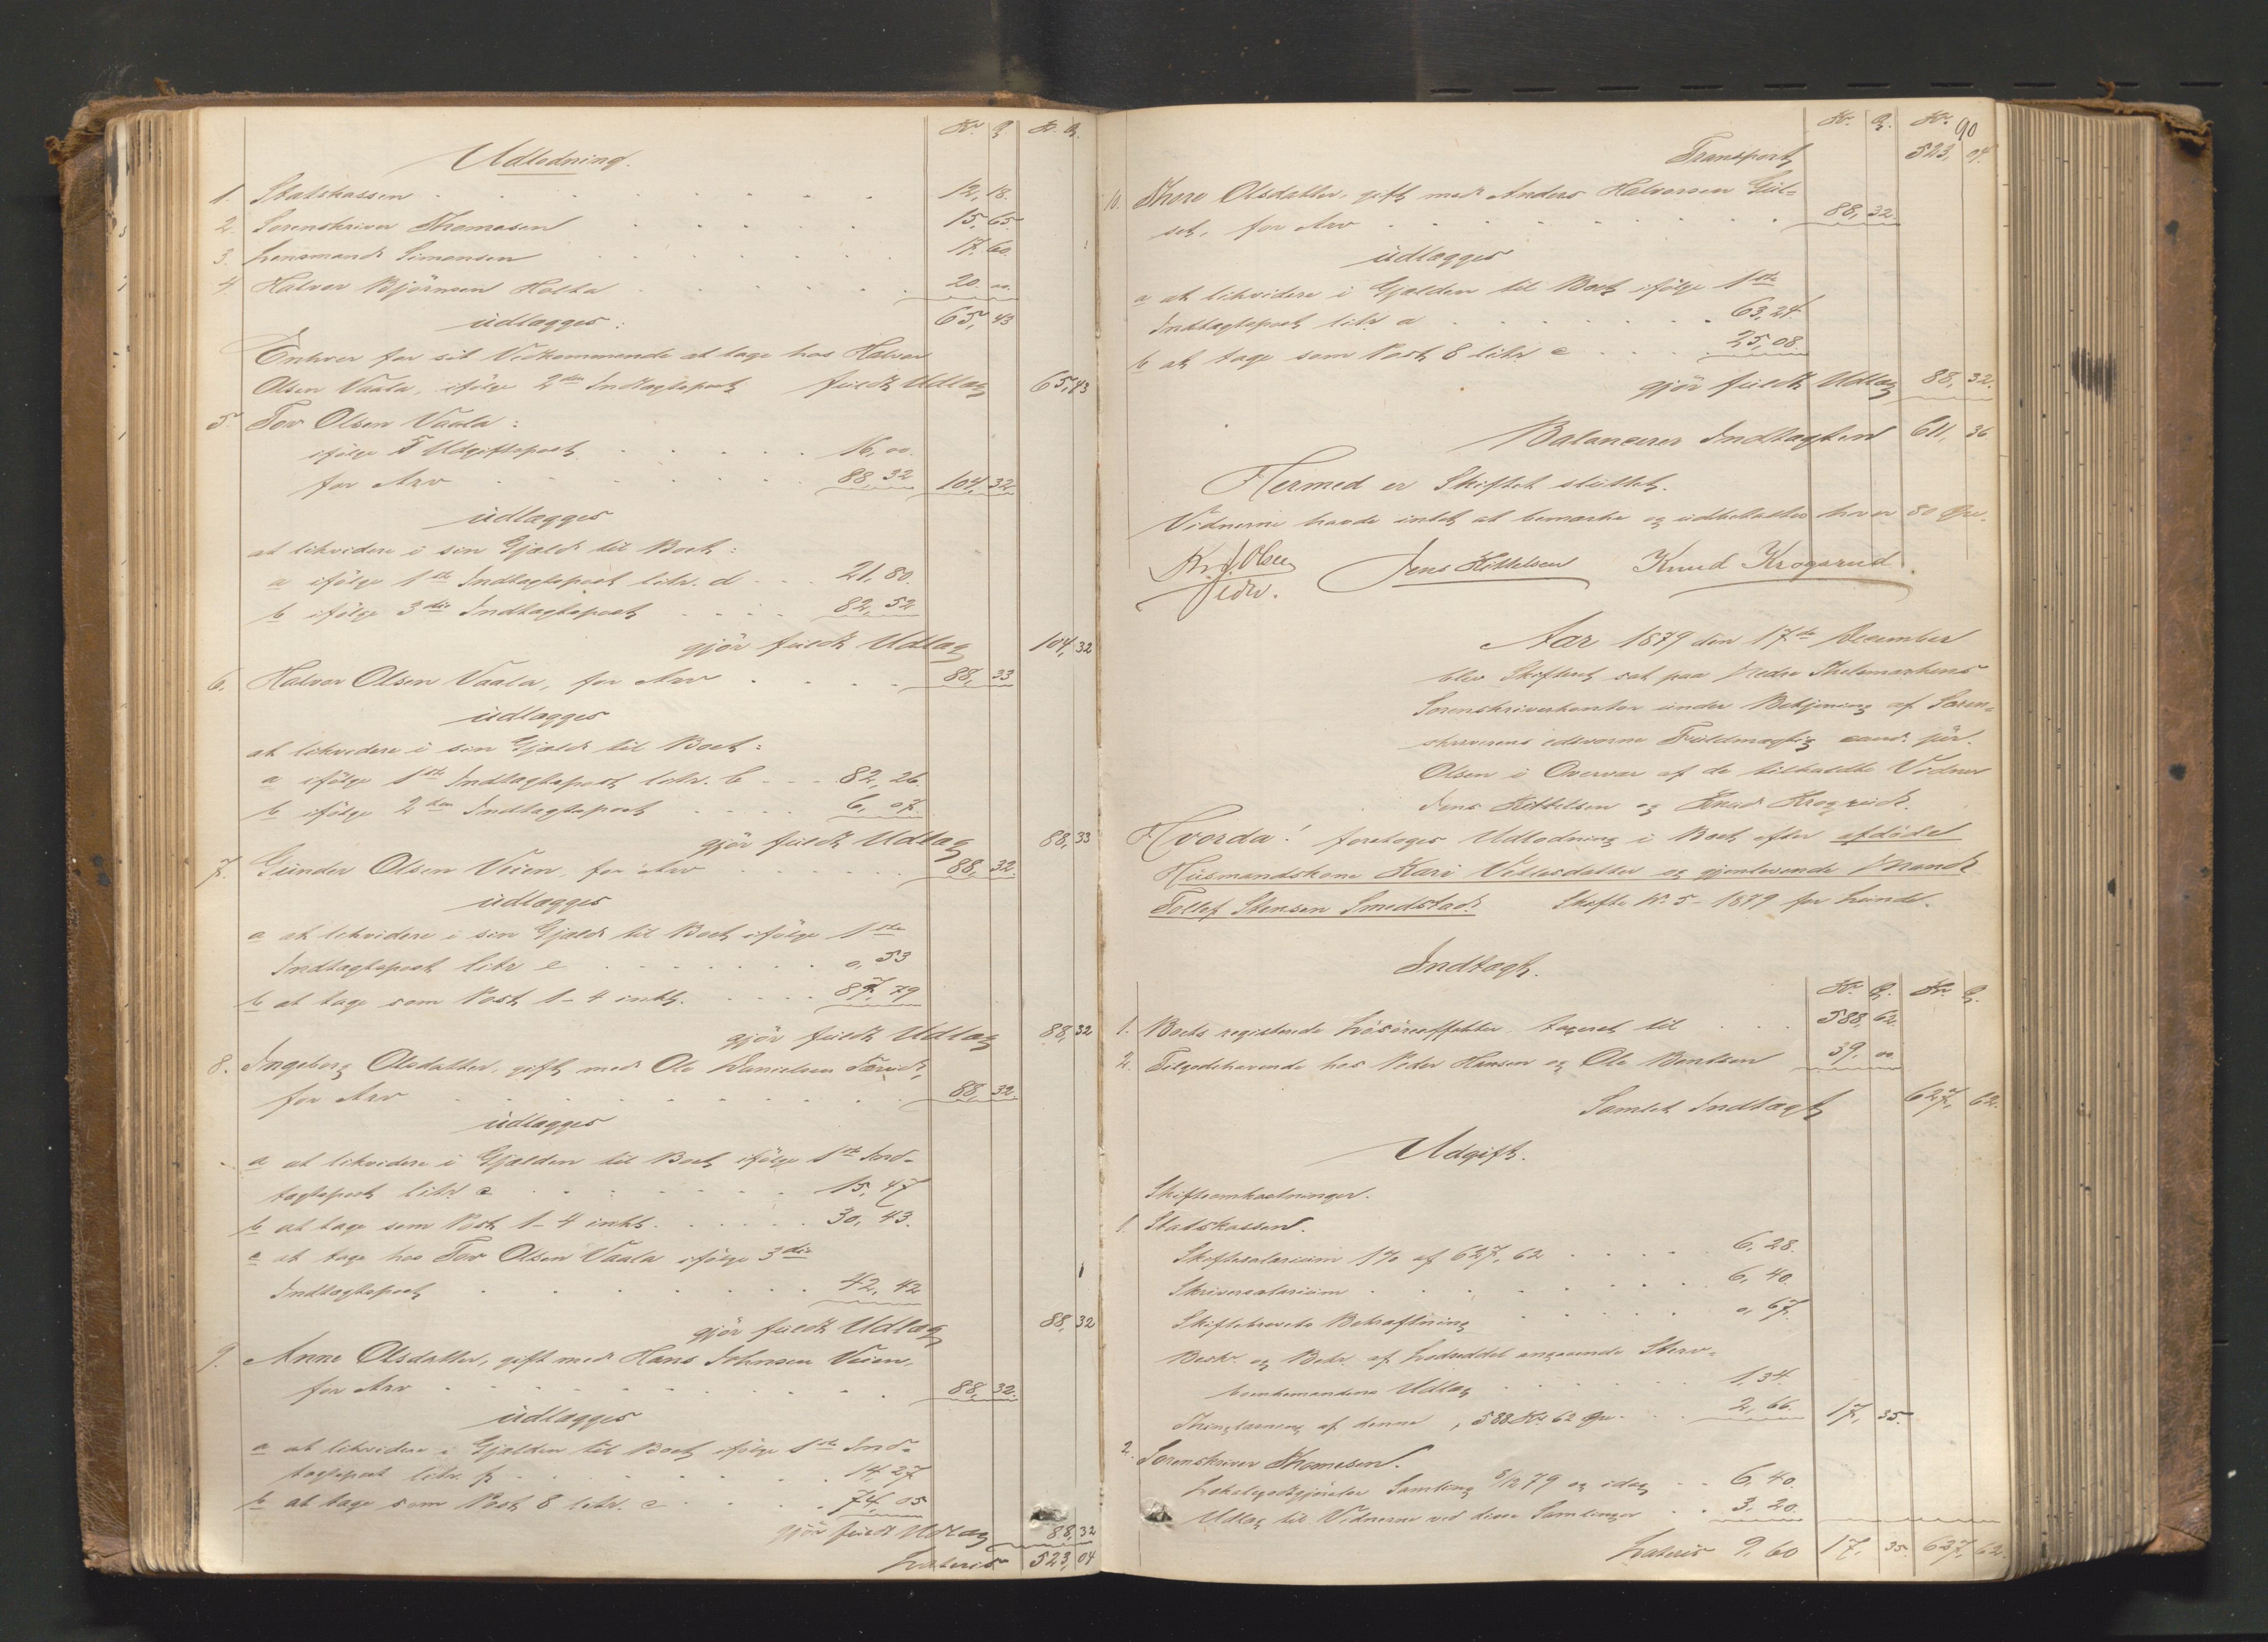 Kr. Ø. Kr. Ø.
Udlodning.
1. Statskassen . . . 12, 18.
2. Sorenskriver Thomesen . . . 15, 65.
3. Lensmand Simonsen . . . 17, 60.
4. Halvor Björnsen Holta . . . 20, 00.
udlægges: 65, 43
Enhver for sit Vedkommende at tage hos Halvor
Olsen Vaala, ifölge 2den Indtægtspost fuldt Udlæg 65, 43
5. Tov Olsen Vaala:
ifölge 5 Udgiftspost . . . 16, 00.
for Arv . . . 88, 32 104, 32.
udlægges
at likvidere i sin Gjæld til Boet:
a ifölge 1ste Indtægtspost litr. d . . . 21, 80.
b ifölge 3die Indtægtspost . . . 82, 52
gjör fuldt Udlæg 104, 32
6. Halvor Olsen Vaala, for Arv . . . 88, 33
udlægges
at likvidere i sin Gjæld til Boet:
a ifölge 1ste Indtægtspost litr. b . . . 82, 26.
b ifölge 2den Indtægtspost . . . 6, 07.
gjör fuldt Udlæg 88, 33
7. Gunder Olsen Veien, for Arv . . . 88, 32.
udlægges
a at likvidere i sin Gjæld til Boet ifölge 1ste
Indtægtspost litr e . . . 0, 53
b at tage som Post 1-4 inkl. . . . 87, 79
gjör fuldt Udlæg 88, 32
8. Ingeborg Olsdatter, gift med Ole Danielsen
for Arv . . . 88, 32.
udlægges
a at likvidere i Gjælden til Boet ifölge 1ste Ind-
tægtspost litr c . . . 15, 47
b at tage som Post 1-4 inkl. . . . 30, 43.
c at tage hos Tov Olsen Vaala ifölge 3die
Indtægtspost . . . 42, 42
gjör fuldt Udlæg 88, 32
9. Anne Olsdatter, gift med Hans Johnsen Veien,
for Arv . . . 88, 32.
udlægges
a at likvidere i Gjælden til Boet ifölge 1ste Ind-
tægtspost litr. f . . . 14, 27
b at tage som Post 8 litr. c . . . 74, 05
gjör fuldt Udlæg 88, 32
Lateris 523, 04
90
Kr. Ø. Kr.
Transport 523, 04.
10. Thore Olsdatter, gift med Anders Halvorsen Gul-
set, for Arv . . . 88, 32.
udlægges
a at likvidere i Gjælden til Boet ifölge 1ste
Indtægtspost litr a . . . 63, 24
b at tage som Post 8 litr c . . . 25, 08.
gjör fuldt Udlæg 88, 32.
Balancerer Indtægten 611, 36
Hermed er Skiftet sluttet.
Vidnerne havde intet at bemærke og udbetaltes hver 80 Øre.
Kr. J. Olsen Jens Kittelsen Knud Krogsrud.
edsv.
Aar 1879 den 17de December
blev Skifteret sat paa Nedre Thelemarkens
Sorenskriverkontor under Betjening af Soren-
skriverens edsvorne Fuldmægtig cand. jur.
Olsen i Overvær af de tilkaldte Vidner
Jens Kittelsen og Knud Krogsrud.
Hvorda! foretoges Udlodning i Boet efter afdöde
Husmandskone Kari Vetlesdatter og gjenlevende Mand
Tollef Stensen Smedstad. Skifte No. 5 - 1879 for Lunde.
Indtægt.
Kr. Ø. Kr. Ø.
1. Boets registrerede Lösöreeffekter taxeret til . . . 588, 62.
2. Tilgodehavende hos Peder Hansen og Ole Bentsen 39, 00.
Samlet Indtægt 627, 62.
Udgift.
Skifteomkostninger.
1. Statskassen.
Skiftesalarium 1% af 627, 62 . . . 6, 28.
Skriversalarium . . . 6, 40.
Skiftebrevets Bekræftning . . . 0, 67.
Beskr. og Bekr. af Lodseddel angaaende Sterv-
boenkemandens Udlæg . . . 1, 34.
Thinglæsning af denne, 588 Kr. 62 Øre . . . 2, 66. 17, 35.
2. Sorenskriver Thomesen.
Lokalegodtgjörelse Samling 5/12 79 og idag . . . 6, 40.
Udlæg til Vidnerne ved disse Samlinger . . . 3, 20.
Lateris 9, 60 17, 35. 627, 62.